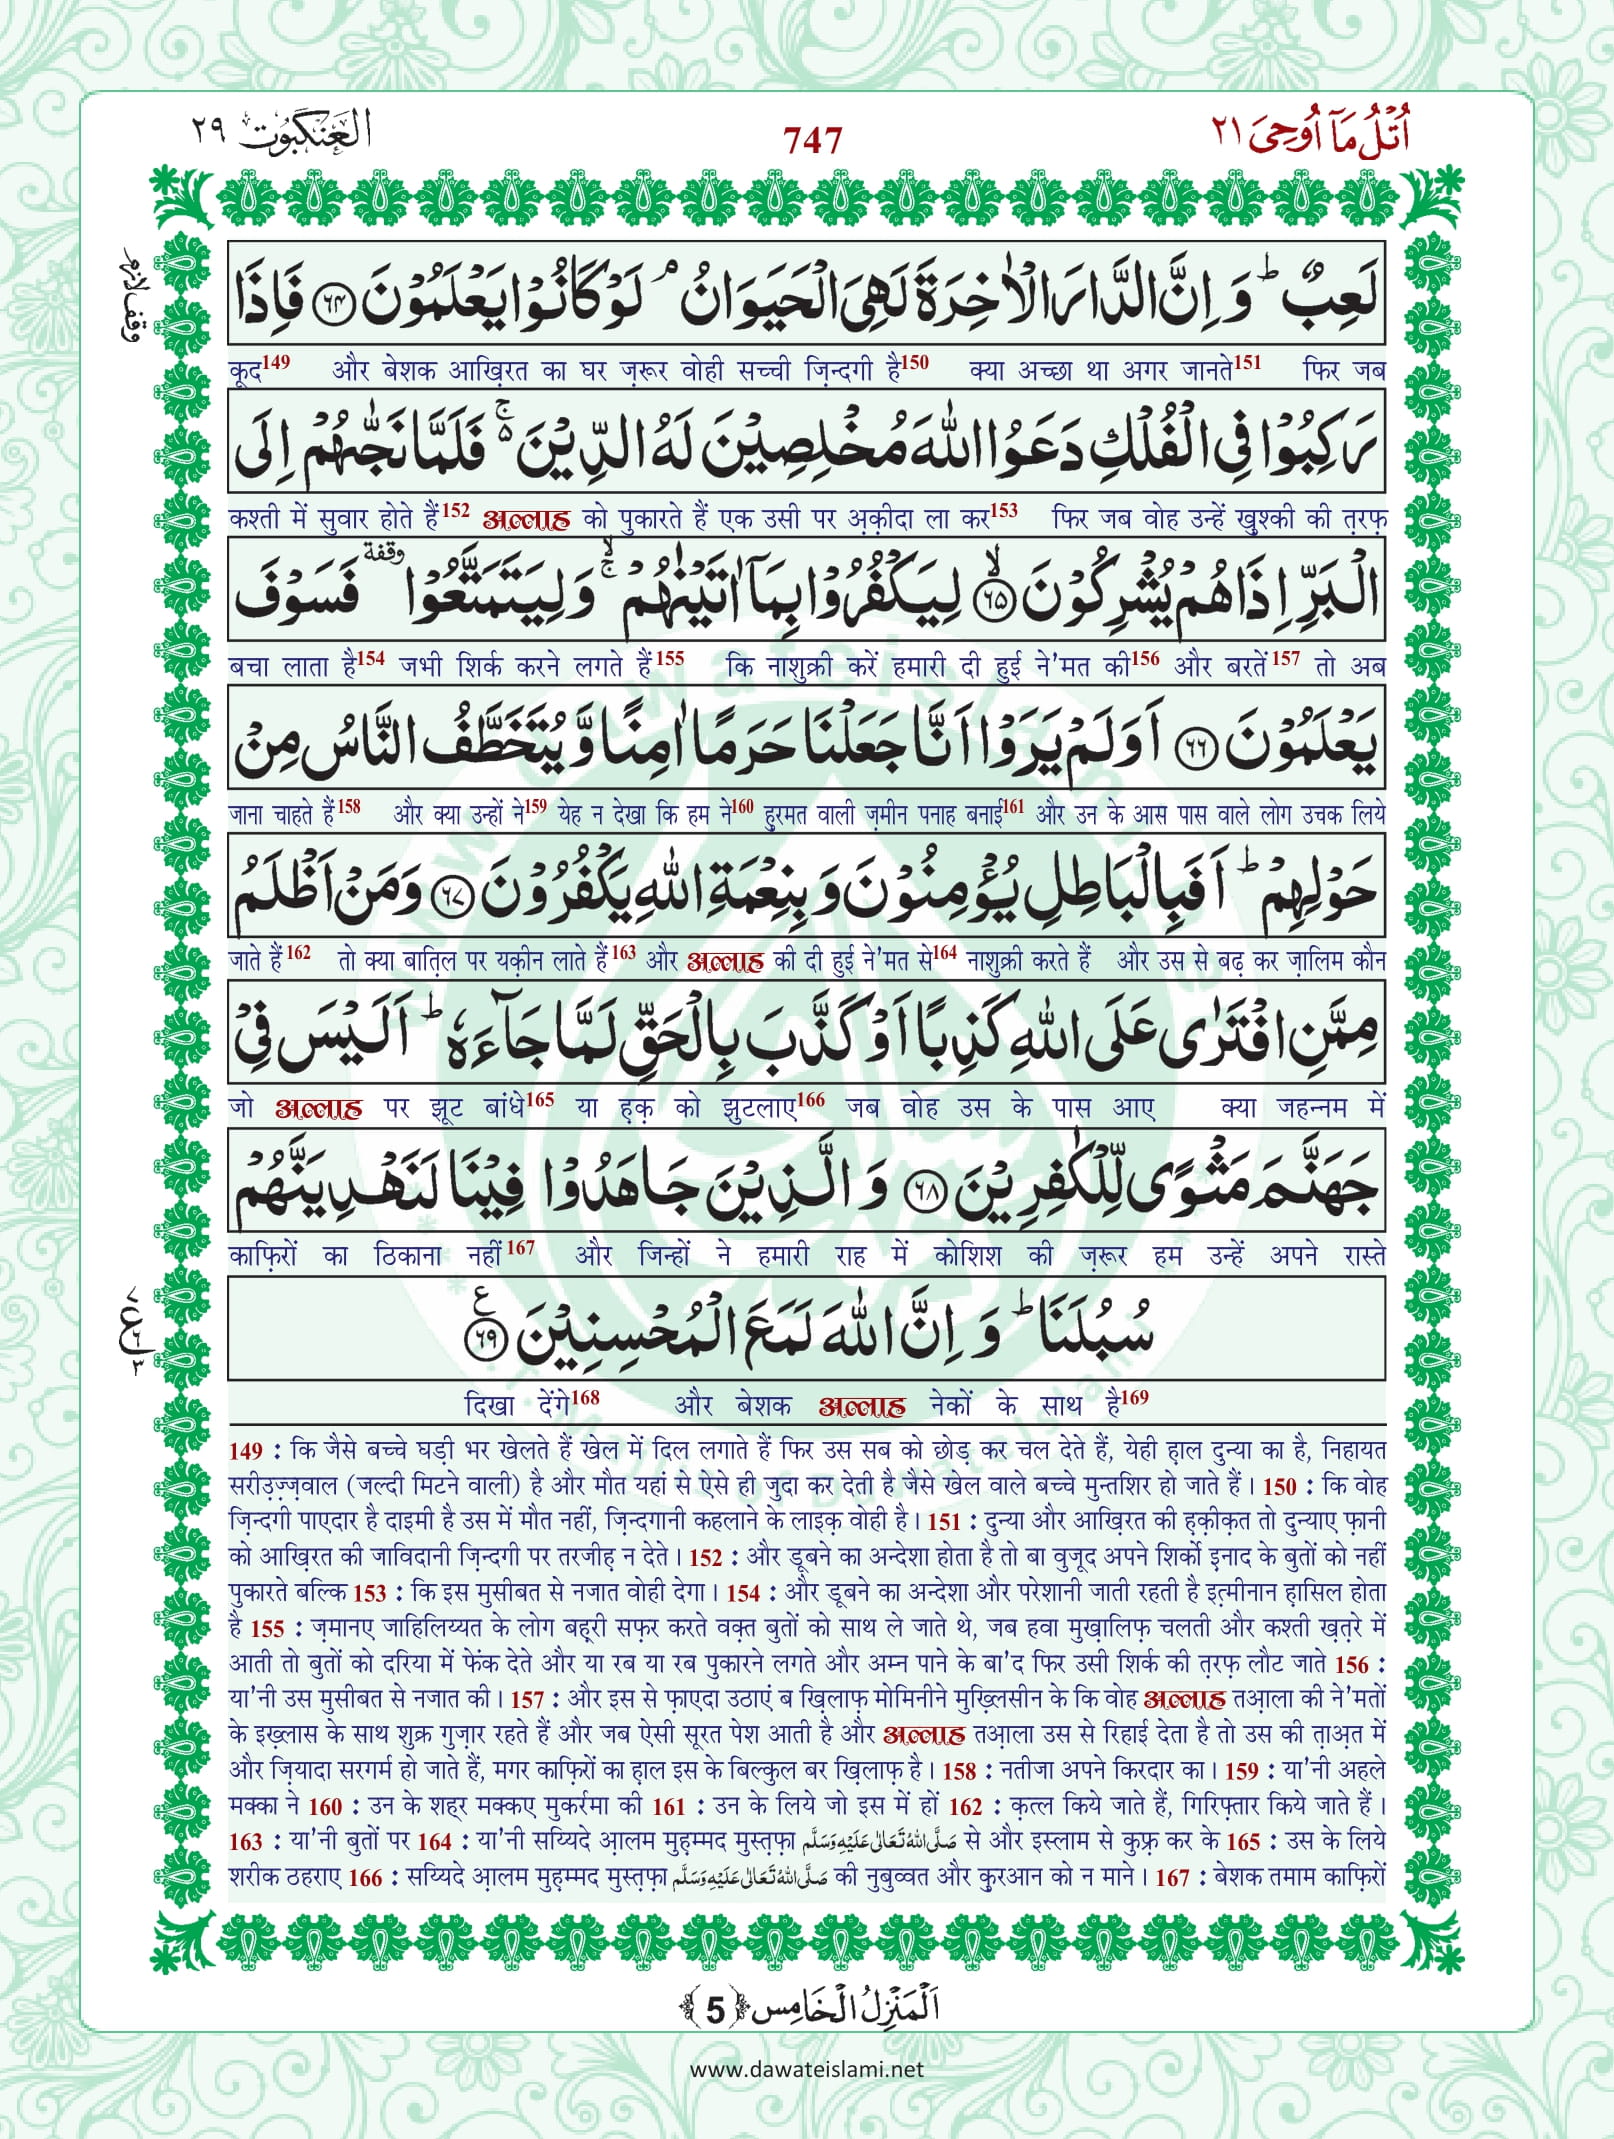 اُتْلُ مَاۤ اُوْحِیَ ۲۱
747
الْعَنْكَبُوْت ۲۹
لَعِبٌ ؕ وَ اِنَّ الدَّارَ الْاٰخِرَةَ لَهِیَ الْحَیَوَانُ ۘ لَوْ كَانُوْا یَعْلَمُوْنَ ﴿۶۴﴾ فَاِذَا
وقف لازم
कूद149 और बेशक आख़िरत का घर ज़रूर वोही सच्ची ज़िन्दगी है150 क्या अच्छा था अगर जानते151 फिर जब
رَكِبُوْا فِی الْفُلْكِ دَعَوُا اللّٰهَ مُخْلِصِیْنَ لَهُ الدِّیْنَ ۚ۬ فَلَمَّا نَجّٰىهُمْ اِلَی
कश्ती में सुवार होते हैं152 अल्लाह को पुकारते हैं एक उसी पर अ़क़ीदा ला कर153 फिर जब वोह उन्हें ख़ुश्की की त़रफ़
الْبَرِّ اِذَا هُمْ یُشْرِكُوْنَ ﴿ۙ۶۵﴾ لِیَكْفُرُوْا بِمَاۤ اٰتَیْنٰهُمْ ۚۙ وَ لِیَتَمَتَّعُوْا وقفة فَسَوْفَ
बचा लाता है154 जभी शिर्क करने लगते हैं155 कि नाशुक्री करें हमारी दी हुई ने'मत की156 और बरतें157 तो अब
یَعْلَمُوْنَ ﴿۶۶﴾ اَوَ لَمْ یَرَوْا اَنَّا جَعَلْنَا حَرَمًا اٰمِنًا وَّ یُتَخَطَّفُ النَّاسُ مِنْ
जाना चाहते हैं158 और क्या उन्हों ने159 येह न देखा कि हम ने160 ह़ुरमत वाली ज़मीन पनाह बनाई161 और उन के आस पास वाले लोग उचक लिये
حَوْلِهِمْ ؕ اَفَبِالْبَاطِلِ یُؤْمِنُوْنَ وَ بِنِعْمَةِ اللّٰهِ یَكْفُرُوْنَ ﴿۶۷﴾ وَ مَنْ اَظْلَمُ
जाते हैं162 तो क्या बात़िल पर यक़ीन लाते हैं163 और अल्लाह की दी हुई ने'मत से164 नाशुक्री करते हैं और उस से बढ़ कर ज़ालिम कौन
مِمَّنِ افْتَرٰى عَلَی اللّٰهِ كَذِبًا اَوْ كَذَّبَ بِالْحَقِّ لَمَّا جَآءَهٗ ؕ اَلَیْسَ فِیْ
जो अल्लाह पर झूट बांधे165 या ह़क़ को झुटलाए166 जब वोह उस के पास आए क्या जहन्नम में
جَهَنَّمَ مَثْوًى لِّلْكٰفِرِیْنَ ﴿۶۸﴾ وَ الَّذِیْنَ جَاهَدُوْا فِیْنَا لَنَهْدِیَنَّهُمْ
काफ़िरों का ठिकाना नहीं167 और जिन्हों ने हमारी राह में कोशिश की ज़रूर हम उन्हें अपने रास्ते
سُبُلَنَا ؕ وَ اِنَّ اللّٰهَ لَمَعَ الْمُحْسِنِیْنَ ﴿۶۹﴾ ع
۷ ع ۶ ۳
दिखा देंगे168 और बेशक अल्लाह नेकों के साथ है169
149 : कि जैसे बच्चे घड़ी भर खेलते हैं खेल में दिल लगाते हैं फिर उस सब को छोड़ कर चल देते हैं, येही ह़ाल दुन्या का है, निहायत
सरीउ़ज़्ज़वाल (जल्दी मिटने वाली) है और मौत यहां से ऐसे ही जुदा कर देती है जैसे खेल वाले बच्चे मुन्तशिर हो जाते हैं। 150 : कि वोह
ज़िन्दगी पाएदार है दाइमी है उस में मौत नहीं, ज़िन्दगानी कहलाने के लाइक़ वोही है। 151 : दुन्या और आख़िरत की ह़क़ीक़त तो दुन्याए फ़ानी
को आख़िरत की जाविदानी ज़िन्दगी पर तरजीह़ न देते। 152 : और डूबने का अन्देशा होता है तो बा वुजूद अपने शिर्को इ़नाद के बुतों को नहीं
पुकारते बल्कि 153 : कि इस मुसीबत से नजात वोही देगा। 154 : और डूबने का अन्देशा और परेशानी जाती रहती है इत़्मीनान ह़ासिल होता
है 155 : ज़मानए जाहिलिय्यत के लोग बह़री सफ़र करते वक़्त बुतों को साथ ले जाते थे, जब हवा मुख़ालिफ़ चलती और कश्ती ख़त़रे में
आती तो बुतों को दरिया में फेंक देते और या रब या रब पुकारने लगते और अम्न पाने के बा'द फिर उसी शिर्क की त़रफ़ लौट जाते 156 :
या'नी उस मुसीबत से नजात की। 157 : और इस से फ़ाएदा उठाएं ब ख़िलाफ़ मोमिनीने मुख़्लिसीन के कि वोह अल्लाह तआ़ला की ने'मतों
के इख़्लास के साथ शुक्र गुज़ार रहते हैं और जब ऐसी सूरत पेश आती है और अल्लाह तआ़ला उस से रिहाई देता है तो उस की त़ाअ़त में
और ज़ियादा सरगर्म हो जाते हैं, मगर काफ़िरों का ह़ाल इस के बिल्कुल बर ख़िलाफ़ है। 158 : नतीजा अपने किरदार का। 159 : या'नी अहले
मक्का ने 160 : उन के शह्र मक्कए मुकर्रमा की 161 : उन के लिये जो इस में हों 162 : क़त्ल किये जाते हैं, गिरिफ़्तार किये जाते हैं।
163 : या'नी बुतों पर 164 : या'नी सय्यिदे आ़लम मुह़म्मद मुस्त़फ़ा صَلَّى اللهُ تَعَالٰى عَلَيْهِ وَسَلَّم से और इस्लाम से कुफ़्र कर के 165 : उस के लिये
शरीक ठहराए 166 : सय्यिदे आ़लम मुह़म्मद मुस्त़फ़ा صَلَّى اللهُ تَعَالٰى عَلَيْهِ وَسَلَّم की नुबुव्वत और क़ुरआन को न माने। 167 : बेशक तमाम काफ़िरों
اَلْمَنْزِلُ الْخَامِس ﴿5﴾
www.dawateislami.net